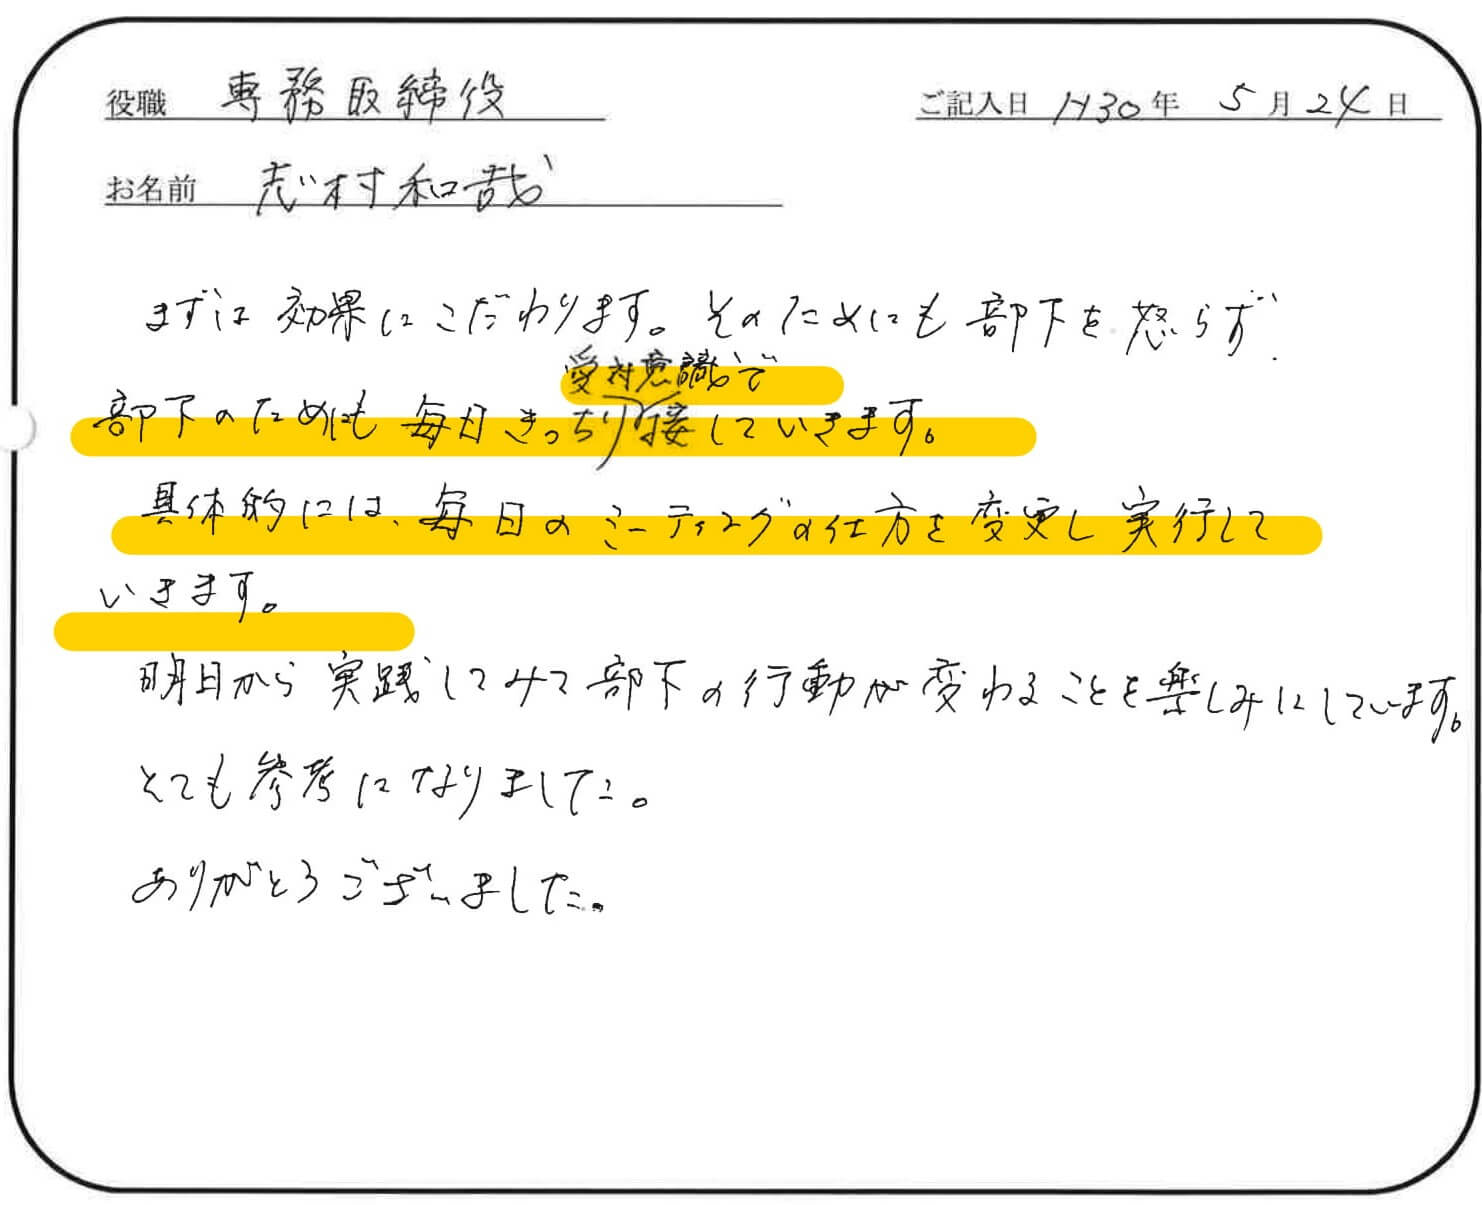 役職 専務取締役
ご記入日 H30年 5月24日
お名前 志村和哉
まずは効果にこだわります。そのためにも部下を怒らず、
受対意識で
部下のためにも毎日きっちり接していきます。
具体的には、毎日のミーティングの仕方を変更し実行して
いきます。
明日から実践してみて部下の行動が変わることを楽しみにしています。
とても参考になりました。
ありがとうございました。